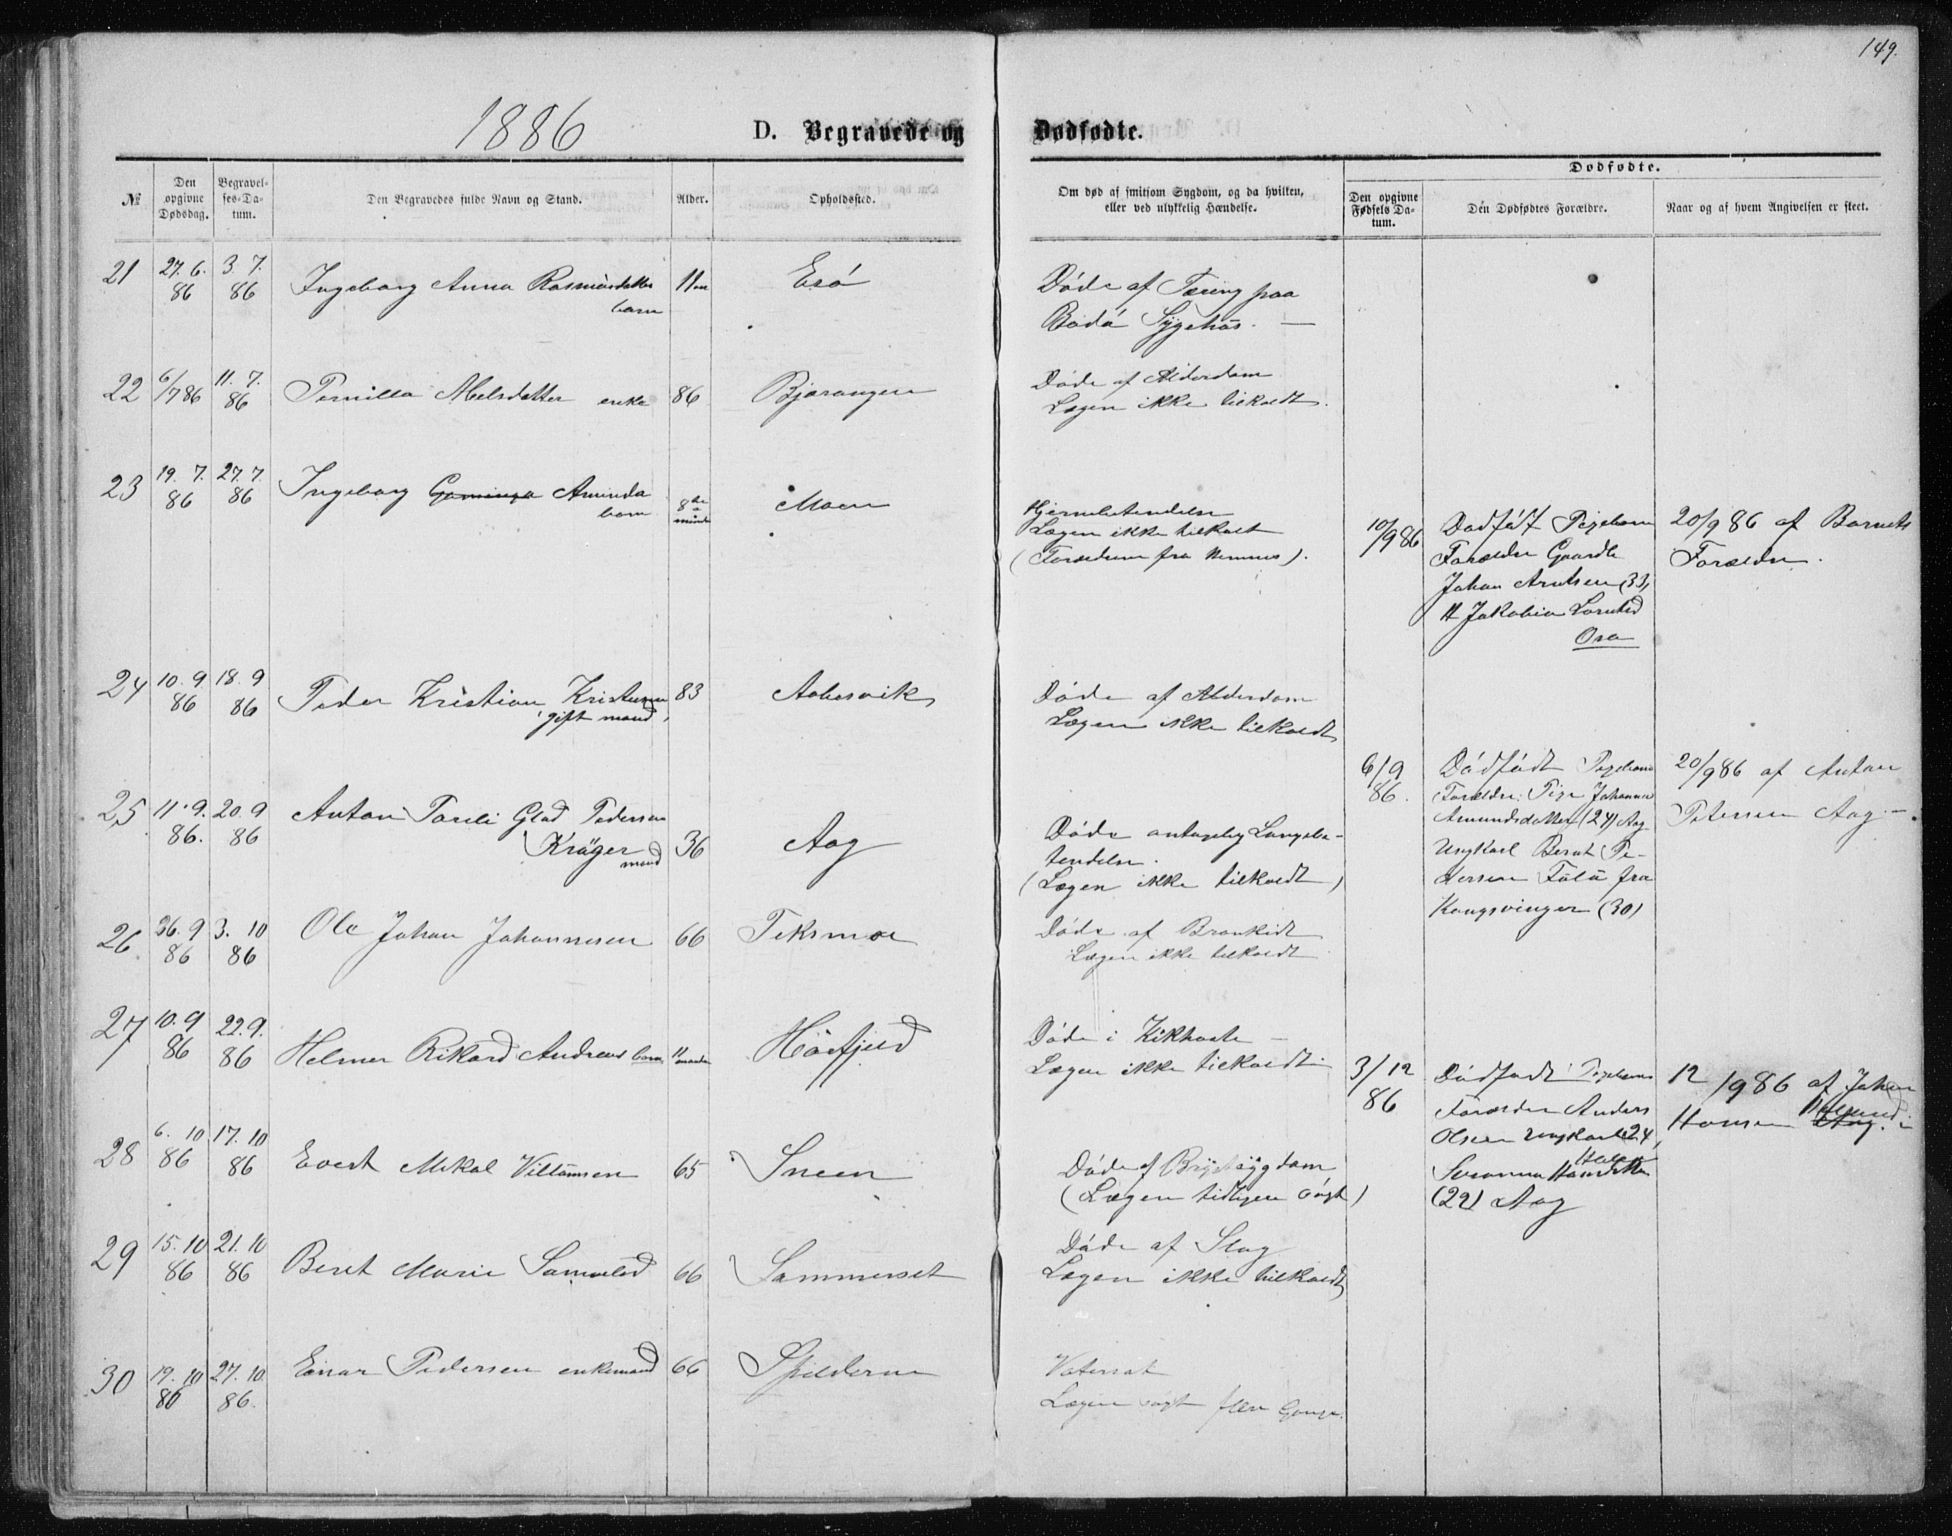 149.
1886
D. Begravede og Dødfødte.
№
Den opgivne Dødsdag.
Begravelses-Datum.
Den Begravedes fulde Navn og Stand.
Alder.
Opholdssted.
Om død af smitsom Sygdom, og da hvilken, eller ved ulykkelig Hændelse.
Dødfødte.
Den opgivne Fødsels Datum.
Den Dødfødtes Forældre.
Naar og af hvem Angivelsen er skeet.
21 27. 6. 86 3. 7. 86 Ingeborg Anna Rasmusdatter 11 Esø
barn
Døde af Tæring paa
Bodø Sygehus. —
22 6/7 86 11. 7. 86 Pernilla Melsdatter enke 86 Bjærangen
Døde af Alderdom
Lægen ikke tilkaldt.
23 19. 7. 86 27. 7. 86 Ingeborg Aminda 8 Moen
barn
Hjernebetendelse
Lægen ikke tilkalt
(Forældrene fra Nemnes).
10/9 86
Dødfødt Pigebarn
Forældre Gaardb
Johan Arntsen (33)
H Jakobia Larntsd
Osa
20/9 86 af Barnets
Forældre.
24 10. 9 86 18. 9 86 Peder Kristian Kristensen 83 Aabesvik
gift mand
Døde af Alderdom
Lægen ikke tilkaldt
25 11. 9. 86. 20. 9 86 Anton Glad Pedersen
Krøger 36 Aag
mand
Døde antagelig Lungebe-
tendelse.
(Lægen ikke tilkaldt)
6/9 86.
Dødfødt Pigebarn
Forældre: Pige Johanna
Amundsdatter (24) Aag
Ungkarl Bernt Pe-
dersen fra
Kongsvinger (30)
20/9 86 af Anton
Petersen Aag —.
26 26. 9 86 3. 10 86 Ole Johan Johannesen 66 Teksmoe
Døde af Bronkidt
Lægen ikke tilkaldt
27 10. 9 86 22. 9. 86 Helmer Rikard Andreas barn 11 maaneder Høefjeld
Døde i Kikhoste —
Lægen ikke tilkaldt.
3/12 86
Dødfødt Pigebarn
Forældre Anders
Olsen Ungkarl 24,
Susanna Hansdatter
(22) Aag
12/9 86 af Johan
Hansen Aag.
28 6. 10 86 17. 10 86 Evert Mikal Villumsen 65 Sneen
Døde af Brystsygdom
(Lægen tidligere søgt)
29 15. 10 86 21. 10 86 Beret Marie Samuelsd 66 Sammerset
Døde af Slag
Lægen ikke tilkaldt
30 19. 10 86 27. 10. 86. Einar Pedersen enkemand 66 Spilderne
Vatersot
Lægen søgt flere Gange.